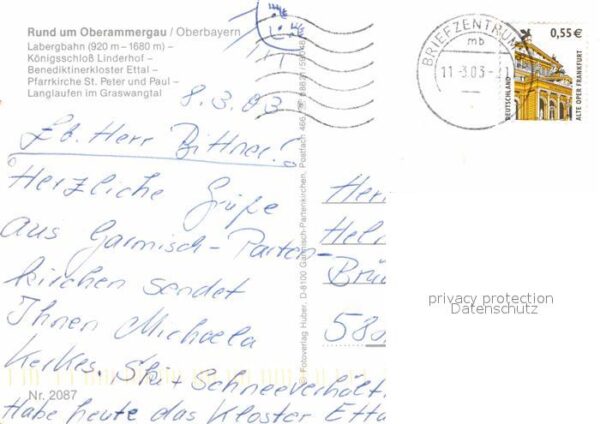 Rund um Oberammergau / Oberbayern
Labergbahn (920 m – 1680 m) –
Königsschloß Linderhof –
Benediktinerkloster Ettal –
Pfarrkirche St. Peter und Paul –
Langlaufen im Graswangtal
8.3.03
Lb. Herr Bittner!
Herzliche Grüße
aus Garmisch-Parten-
kirchen sendet
Ihnen Michaela
Kerkes. Ski + Schneeverhält
Habe heute das Kloster Etta
Nr. 2087
© Fotoverlag Huber, D-8100 Garmisch-Partenkirchen, Postfach 466,
BRIEFZENTRUM
mb
11-3.03
0,55 €
DEUTSCHLAND
ALTE OPER FRANKFURT
Her
Hel
Brü
58
privacy protection
Datenschutz